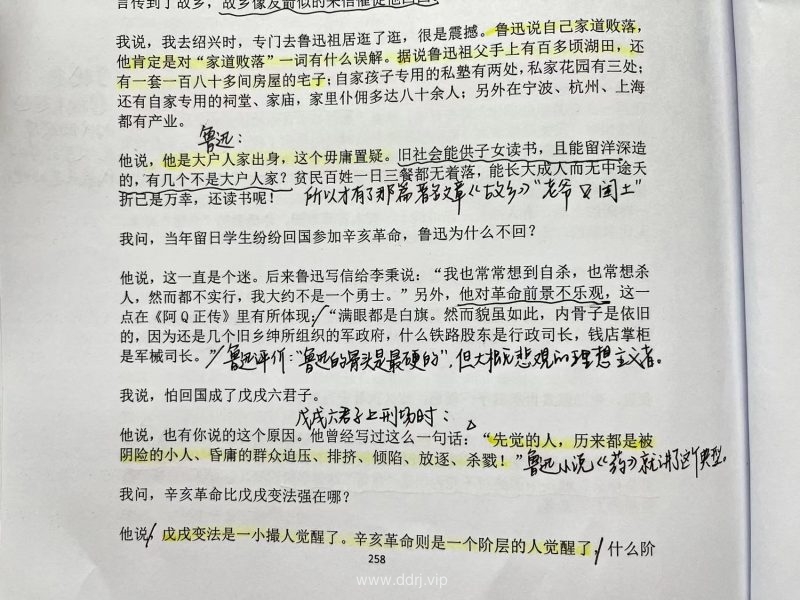 言传到了故乡，故乡像发箭似的来信催促他回国。
我说，我去绍兴时，专门去鲁迅祖居逛了逛，很是震撼。鲁迅说自己家道败落，
他肯定是对“家道败落”一词有什么误解。据说鲁迅祖父手上有百多顷湖田，还
有一套一百八十多间房屋的宅子；自家孩子专用的私塾有两处，私家花园有三处；
还有自家专用的祠堂、家庙，家里仆佣多达八十余人；另外在宁波、杭州、上海
都有产业。
鲁迅：
他说，他是大户人家出身，这个毋庸置疑。旧社会能供子女读书，且能留洋深造
的，有几个不是大户人家？贫民百姓一日三餐都无着落，能长大成人而无中途夭
折已是万幸，还读书呢！
所以才有了那篇著名文章《故乡》“老爷 又 闰土”
我问，当年留日学生纷纷回国参加辛亥革命，鲁迅为什么不回？
他说，这一直是个迷。后来鲁迅写信给李秉说：“我也常常想到自杀，也常想杀
人，然而都不实行，我大约不是一个勇士。”另外，他对革命前景不乐观，这一
点在《阿Q正传》里有所体现：“满眼都是白旗。然而貌虽如此，内骨子是依旧
的，因为还是几个旧乡绅所组织的军政府，什么铁路股东是行政司长，钱店掌柜
是军械司长。”
鲁迅评价：“鲁迅的骨头是最硬的”，但大概悲观的理想主义者。
我说，怕回国成了戊戌六君子。
戊戌六君子上刑场时：
他说，也有你说的这个原因。他曾经写过这么一句话：“先觉的人，历来都是被
阴险的小人、昏庸的群众迫压、排挤、倾陷、放逐、杀戮！”
鲁迅小说《药》就讲了这个典型。
我问，辛亥革命比戊戌变法强在哪？
他说，戊戌变法是一小撮人觉醒了。辛亥革命则是一个阶层的人觉醒了，什么阶
258
www.ddrj.vip